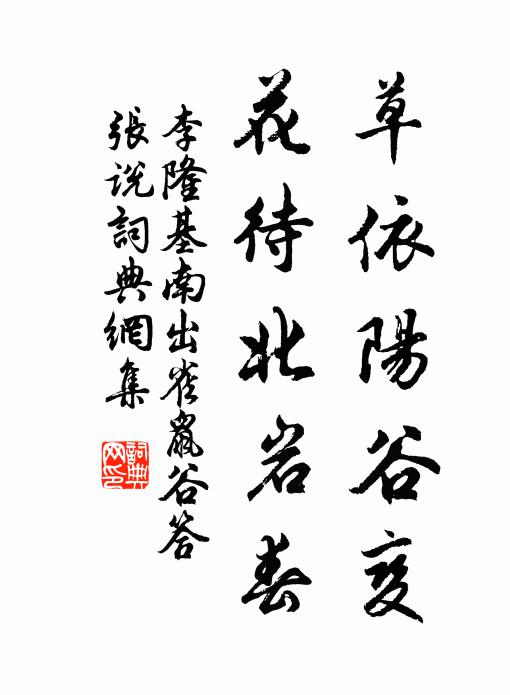 草依陽谷变
花待北岩春
李隆基南出雀鼠谷答
張说詞典網集
詞典
网印